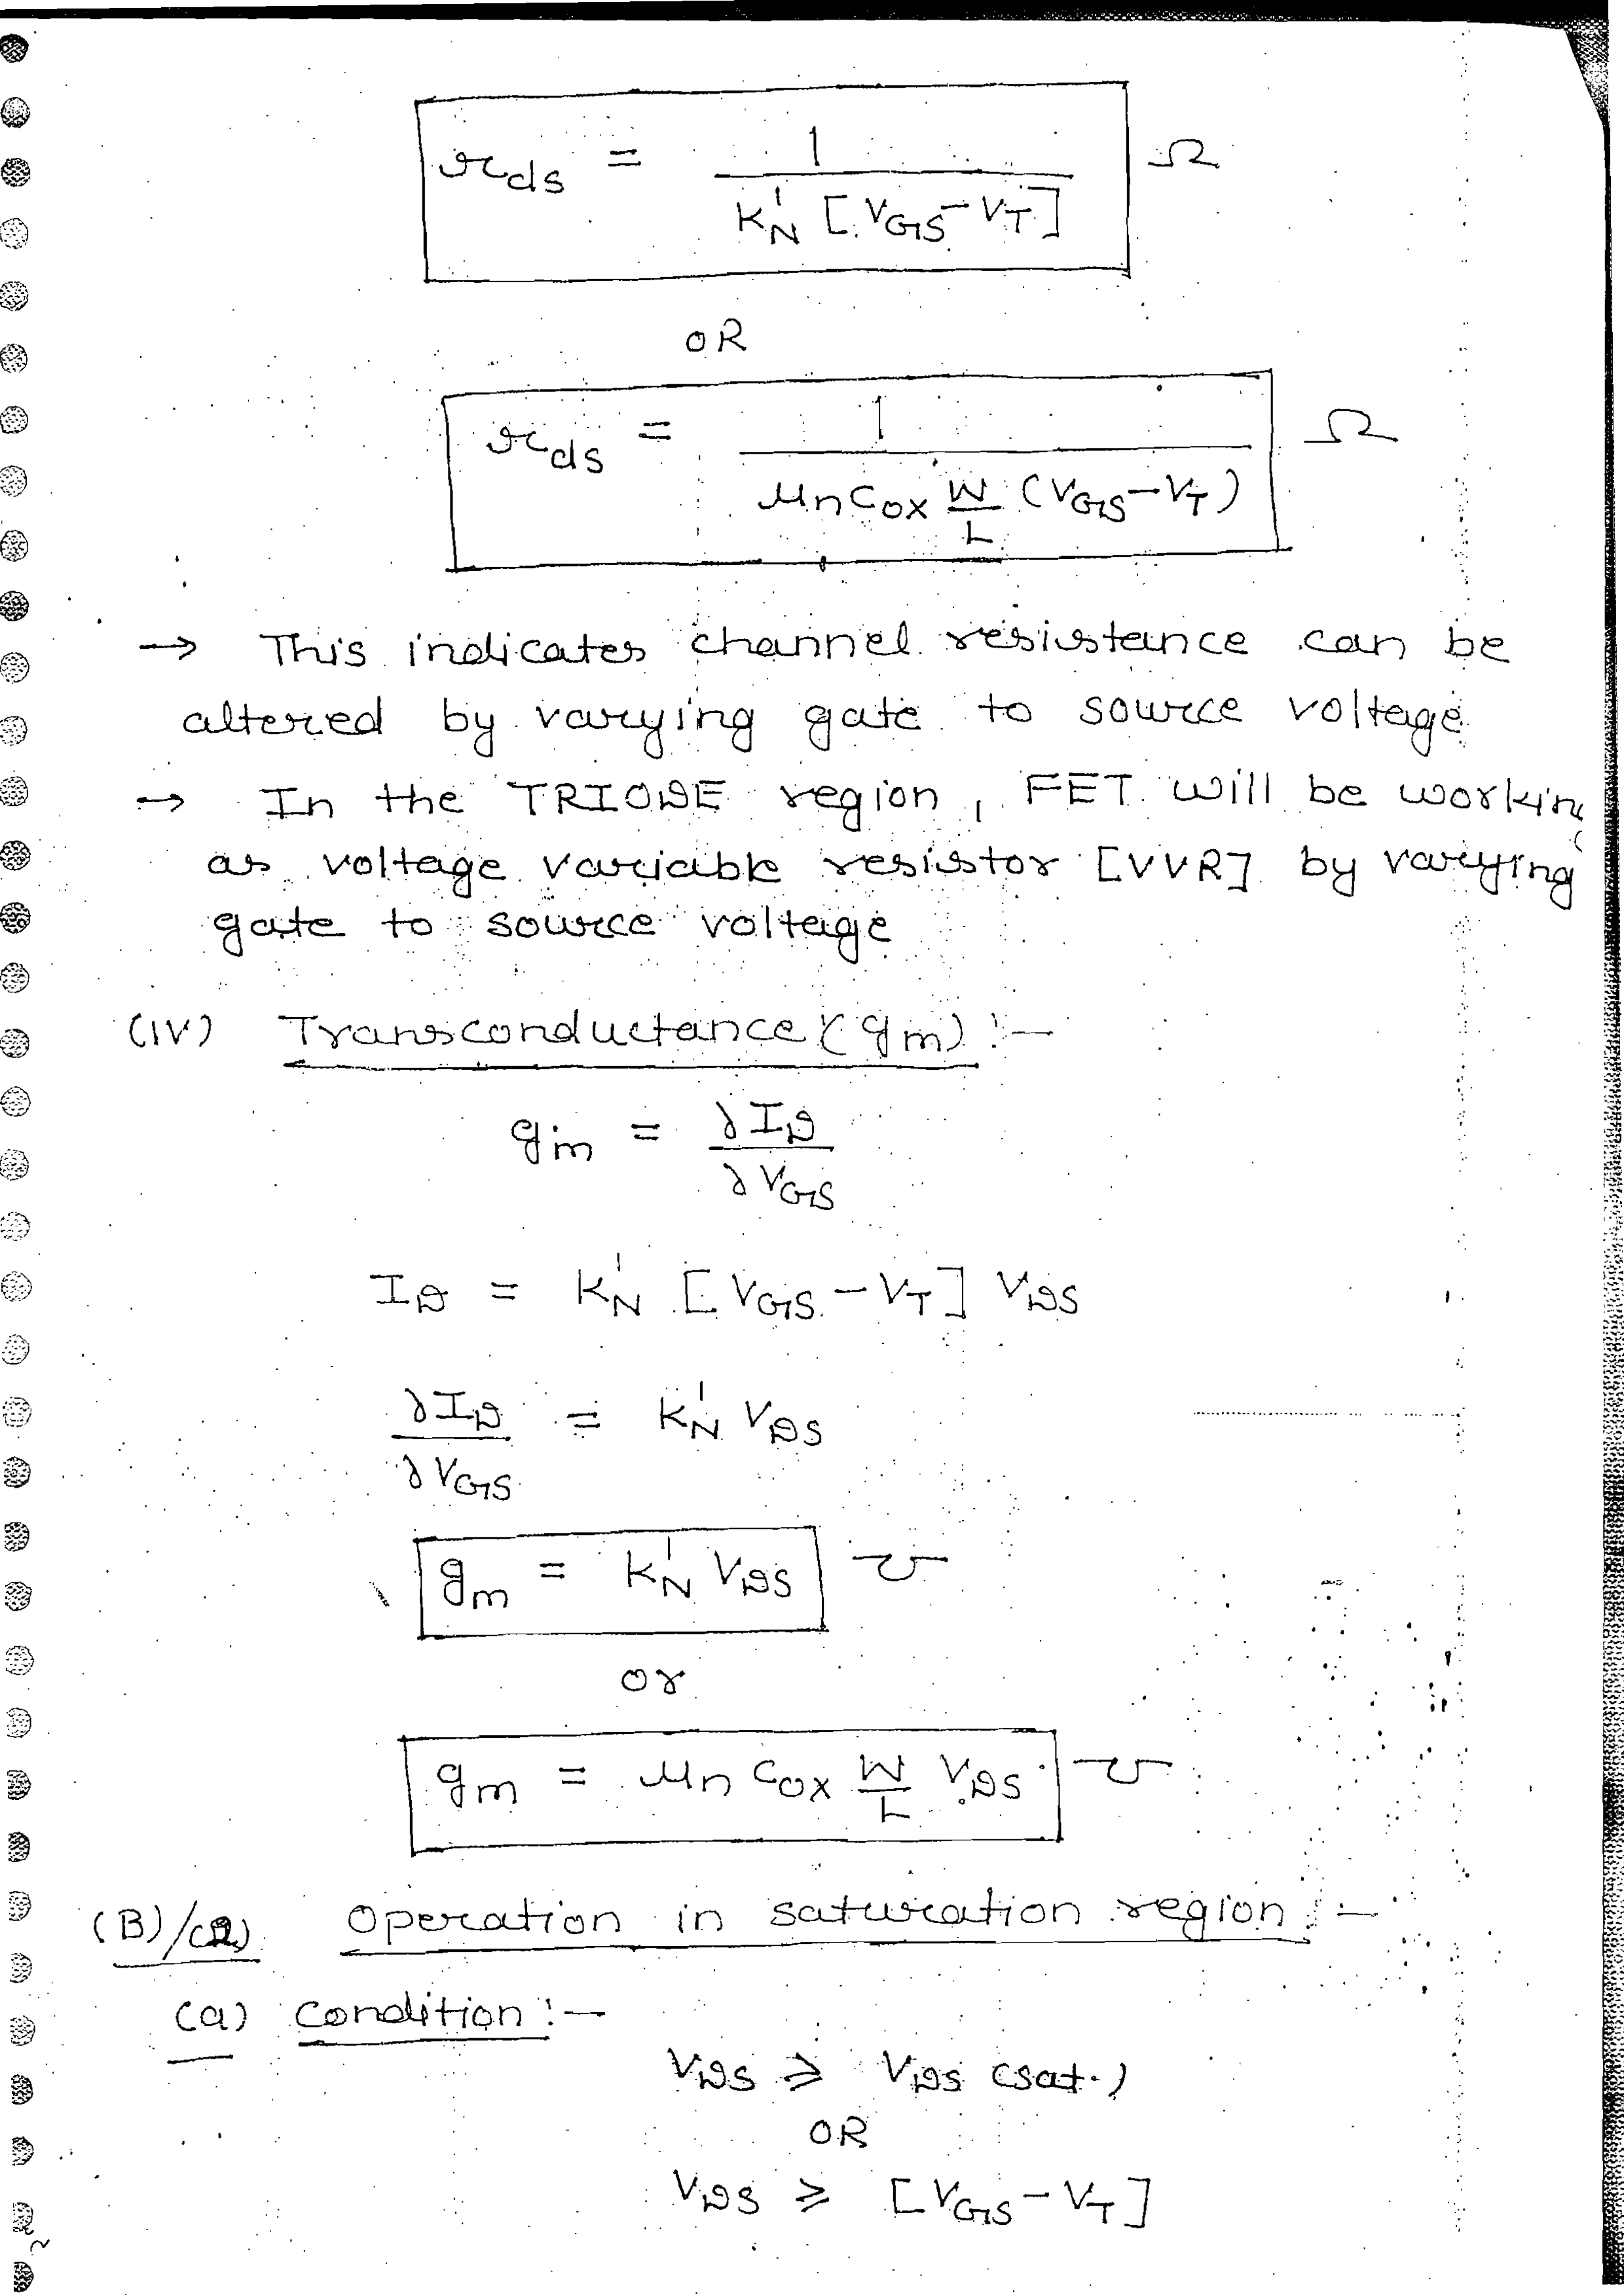 r_ds = 1 / K'_N [V_GS - V_T] Ω
OR
r_ds = 1 / μn Cox W/L (V_GS - V_T) Ω
→ This indicates channel resistance can be
altered by varying gate to source voltage
→ In the TRIODE region, FET will be workin
as voltage variable resistor [VVR] by varying
gate to source voltage
(IV) Transconductance (gm) :-
gm = ∂I_D / ∂V_GS
I_D = K'_N [V_GS - V_T] V_DS
∂I_D / ∂V_GS = K'_N V_DS
gm = K'_N V_DS ℧
or
gm = μn Cox W/L V_DS ℧
(B)/(2) Operation in saturation region :-
(a) condition :-
V_DS ≥ V_DS (sat.)
OR
V_DS ≥ [V_GS - V_T]